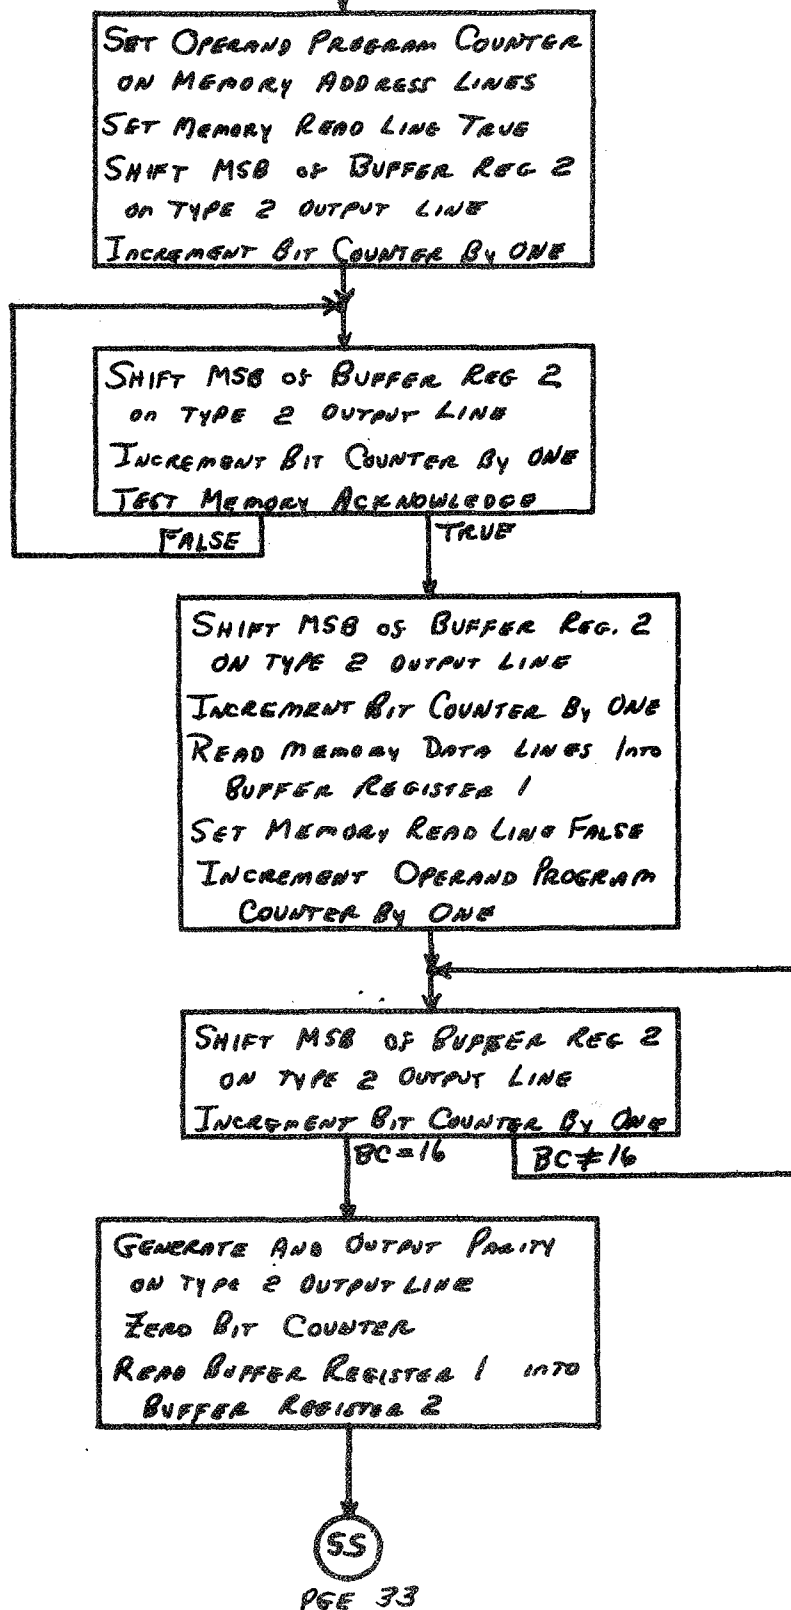 SET OPERAND PROGRAM COUNTER
ON MEMORY ADDRESS LINES
SET MEMORY READ LINE TRUE
SHIFT MSB OF BUFFER REG 2
ON TYPE 2 OUTPUT LINE
INCREMENT BIT COUNTER BY ONE
SHIFT MSB OF BUFFER REG 2
ON TYPE 2 OUTPUT LINE
INCREMENT BIT COUNTER BY ONE
TEST MEMORY ACKNOWLEDGE
FALSE
TRUE
SHIFT MSB OF BUFFER REG. 2
ON TYPE 2 OUTPUT LINE
INCREMENT BIT COUNTER BY ONE
READ MEMORY DATA LINES INTO
BUFFER REGISTER 1
SET MEMORY READ LINE FALSE
INCREMENT OPERAND PROGRAM
COUNTER BY ONE
SHIFT MSB OF BUFFER REG 2
ON TYPE 2 OUTPUT LINE
INCREMENT BIT COUNTER BY ONE
BC=16
BC≠16
GENERATE AND OUTPUT PARITY
ON TYPE 2 OUTPUT LINE
ZERO BIT COUNTER
READ BUFFER REGISTER 1 INTO
BUFFER REGISTER 2
SS
PGE 33